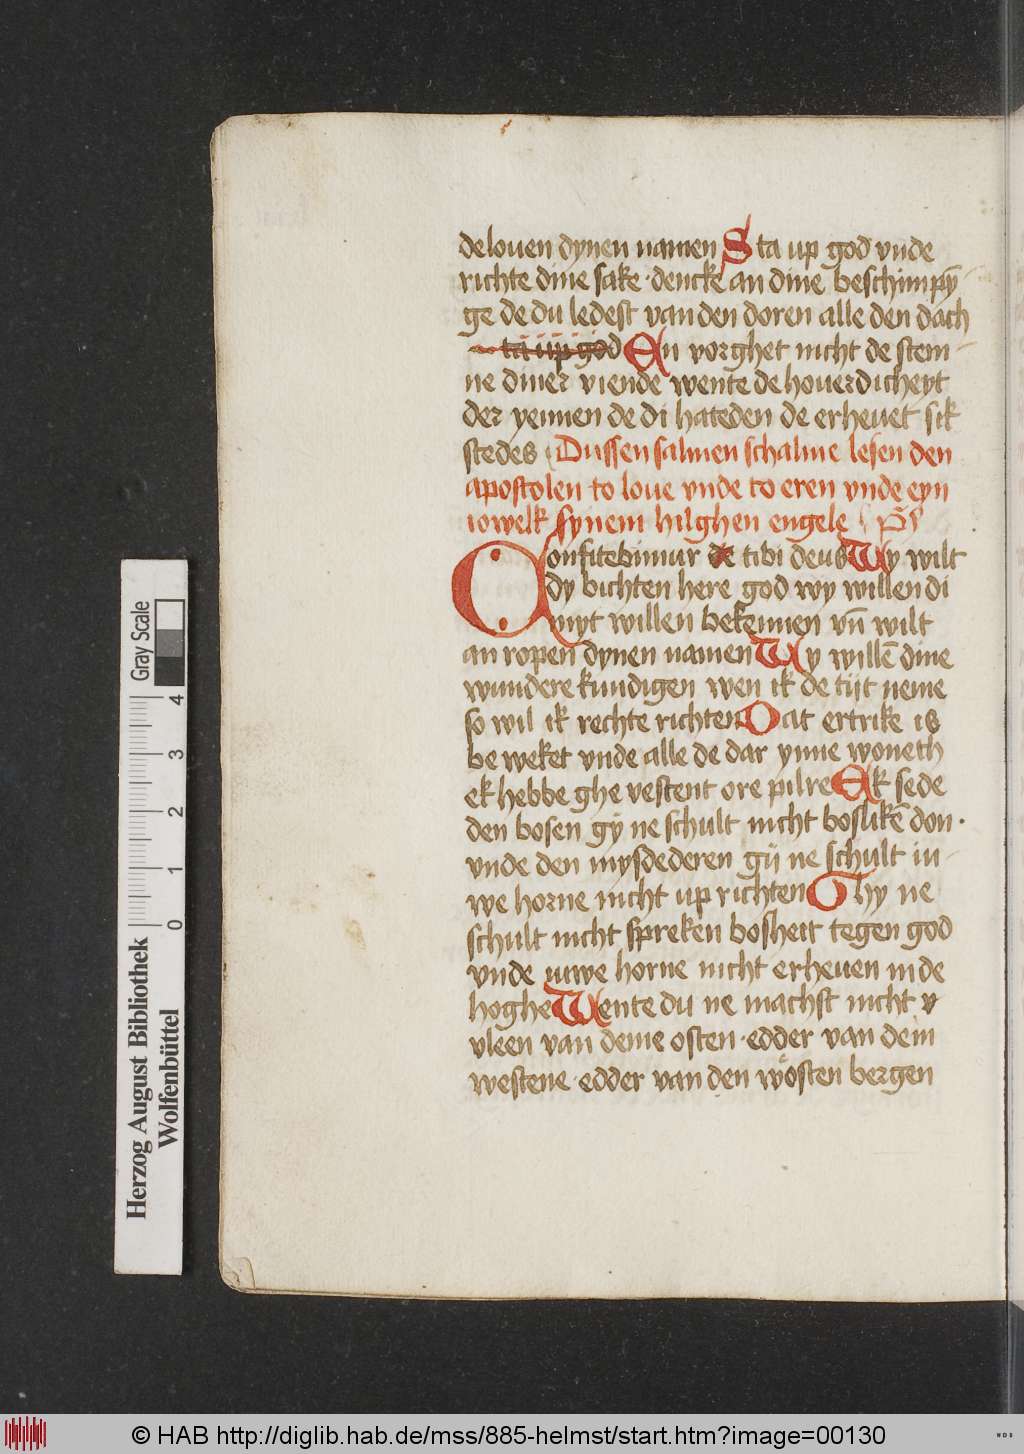 de louen dynen namen Sta up god vnde
richte dine sake · dencke an dine beschimpȳ-
ge de du ledest van den doren alle den dach
ta up god En vorghet nicht de stem-
ne diner viende wente de houerdicheyt
der yennen de di hateden de erheuet sik
stedes Dussen salmen schalme lesen den
apostolen to loue vnde to eren vnde eyn
iowelk synem hilghen engele
Confitebimur de tibi deus Wy wilt
dy bichten here god wy willen di
myt willen bekennen vn̄ wilt
an ropen dynen namen Wy willē dine
wundere kundigen wen ik de tijt neme
so wil ik rechte richten Dat ertrike is
be weket vnde alle de dar ynne woneth
ek hebbe ghe vestent ore pilre Ek sede
den bosen gy ne schult nicht boslikē don ·
vnde den mysdederen gij ne schult iu-
we horne nicht up richten Ghy ne
schult nicht spreken bosheit tegen god
vnde iuwe horne nicht erheuen in de
hoghe Wente du ne machst nicht v
vleen van deme osten · edder van dem
westene · edder van den wösten bergen
Herzog August Bibliothek
Wolfenbüttel
Gray Scale
0 1 2 3 4
© HAB http://diglib.hab.de/mss/885-helmst/start.htm?image=00130